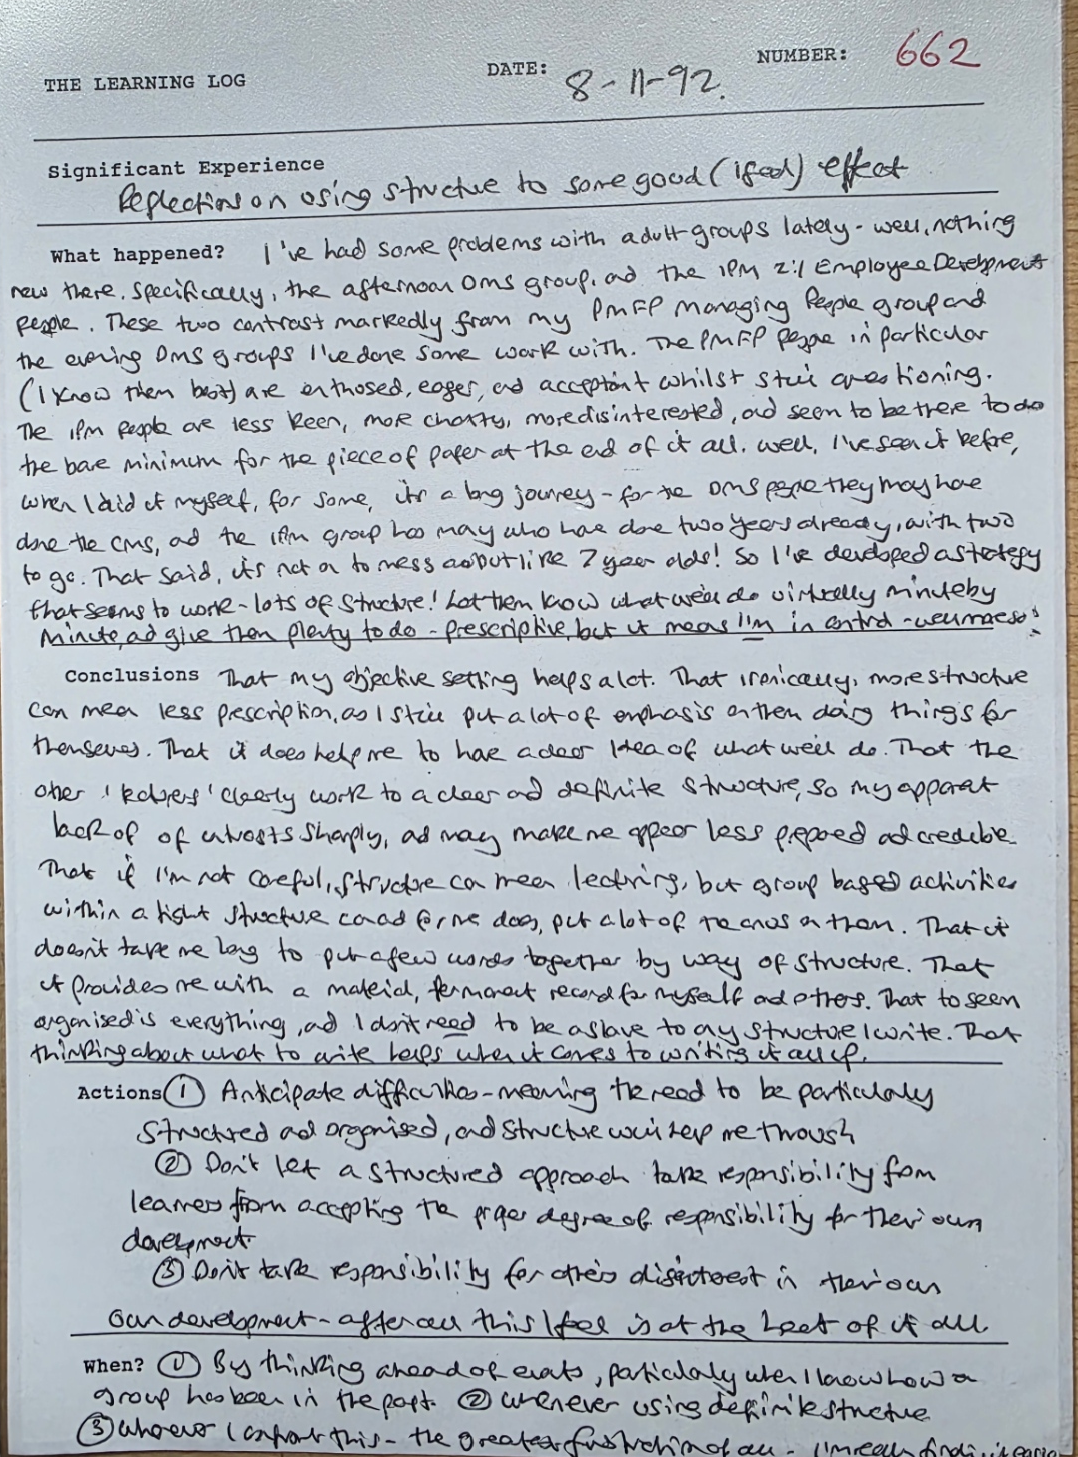 THE LEARNING LOG DATE: 8-11-92. NUMBER: 662
Significant Experience
Reflections on using structure to some good (if ed) effect
What happened? I've had some problems with adult groups lately - well, nothing
new there. Specifically, the afternoon DMS group, and the IPM 2:1 Employee Development
people. These two contrast markedly from my PMFP Managing People group and
the evening DMS groups I've done some work with. The PMFP people in particular
(I know them best) are enthused, eager, and acceptant whilst still questioning.
The IPM people are less keen, more chatty, more disinterested, and seem to be there to do
the bare minimum for the piece of paper at the end of it all. Well, I've seen it before,
when I did it myself, for some, it's a long journey - for the DMS people they may have
done the CMS, and the IPM group has many who have done two years already, with two
to go. That said, it's not on to mess about like 7 year olds! So I've developed a strategy
that seems to work - lots of structure! Let them know what we'll do virtually minute by
minute, and give them plenty to do - prescriptive, but it means I'm in control - well more so!
Conclusions That my objective setting helps a lot. That ironically, more structure
can mean less prescription, as I still put a lot of emphasis on them doing things for
themselves. That it does help me to have a clear idea of what we'll do. That the
other ' ' clearly work to a clear and definite structure, so my apparent
lack of of contrasts sharply, and may make me appear less prepared and credible.
That if I'm not careful, structure can mean lecturing, but group based activities
within a tight structure could for me does, put a lot of the onus on them. That it
doesn't take me long to put a few words together by way of structure. That
it provides me with a material, permanent record for myself and others. That to seem
organised is everything, and I don't need to be a slave to any structure I write. That
thinking about what to write helps when it comes to writing it all up.
Actions ① Anticipate difficulties - meaning the need to be particularly
structured and organised, and structure will help me through
② Don't let a structured approach take responsibility from
learners from accepting the proper degree of responsibility for their own
development
③ Don't take responsibility for others disinterest in their own
own development - after all this I feel is at the heart of it all.
When? ① By thinking ahead of events, particularly when I know how a
group has been in the past. ② Whenever using definite structure
③ Whenever I confront this - the greatest frustration of all - I'm really finding it